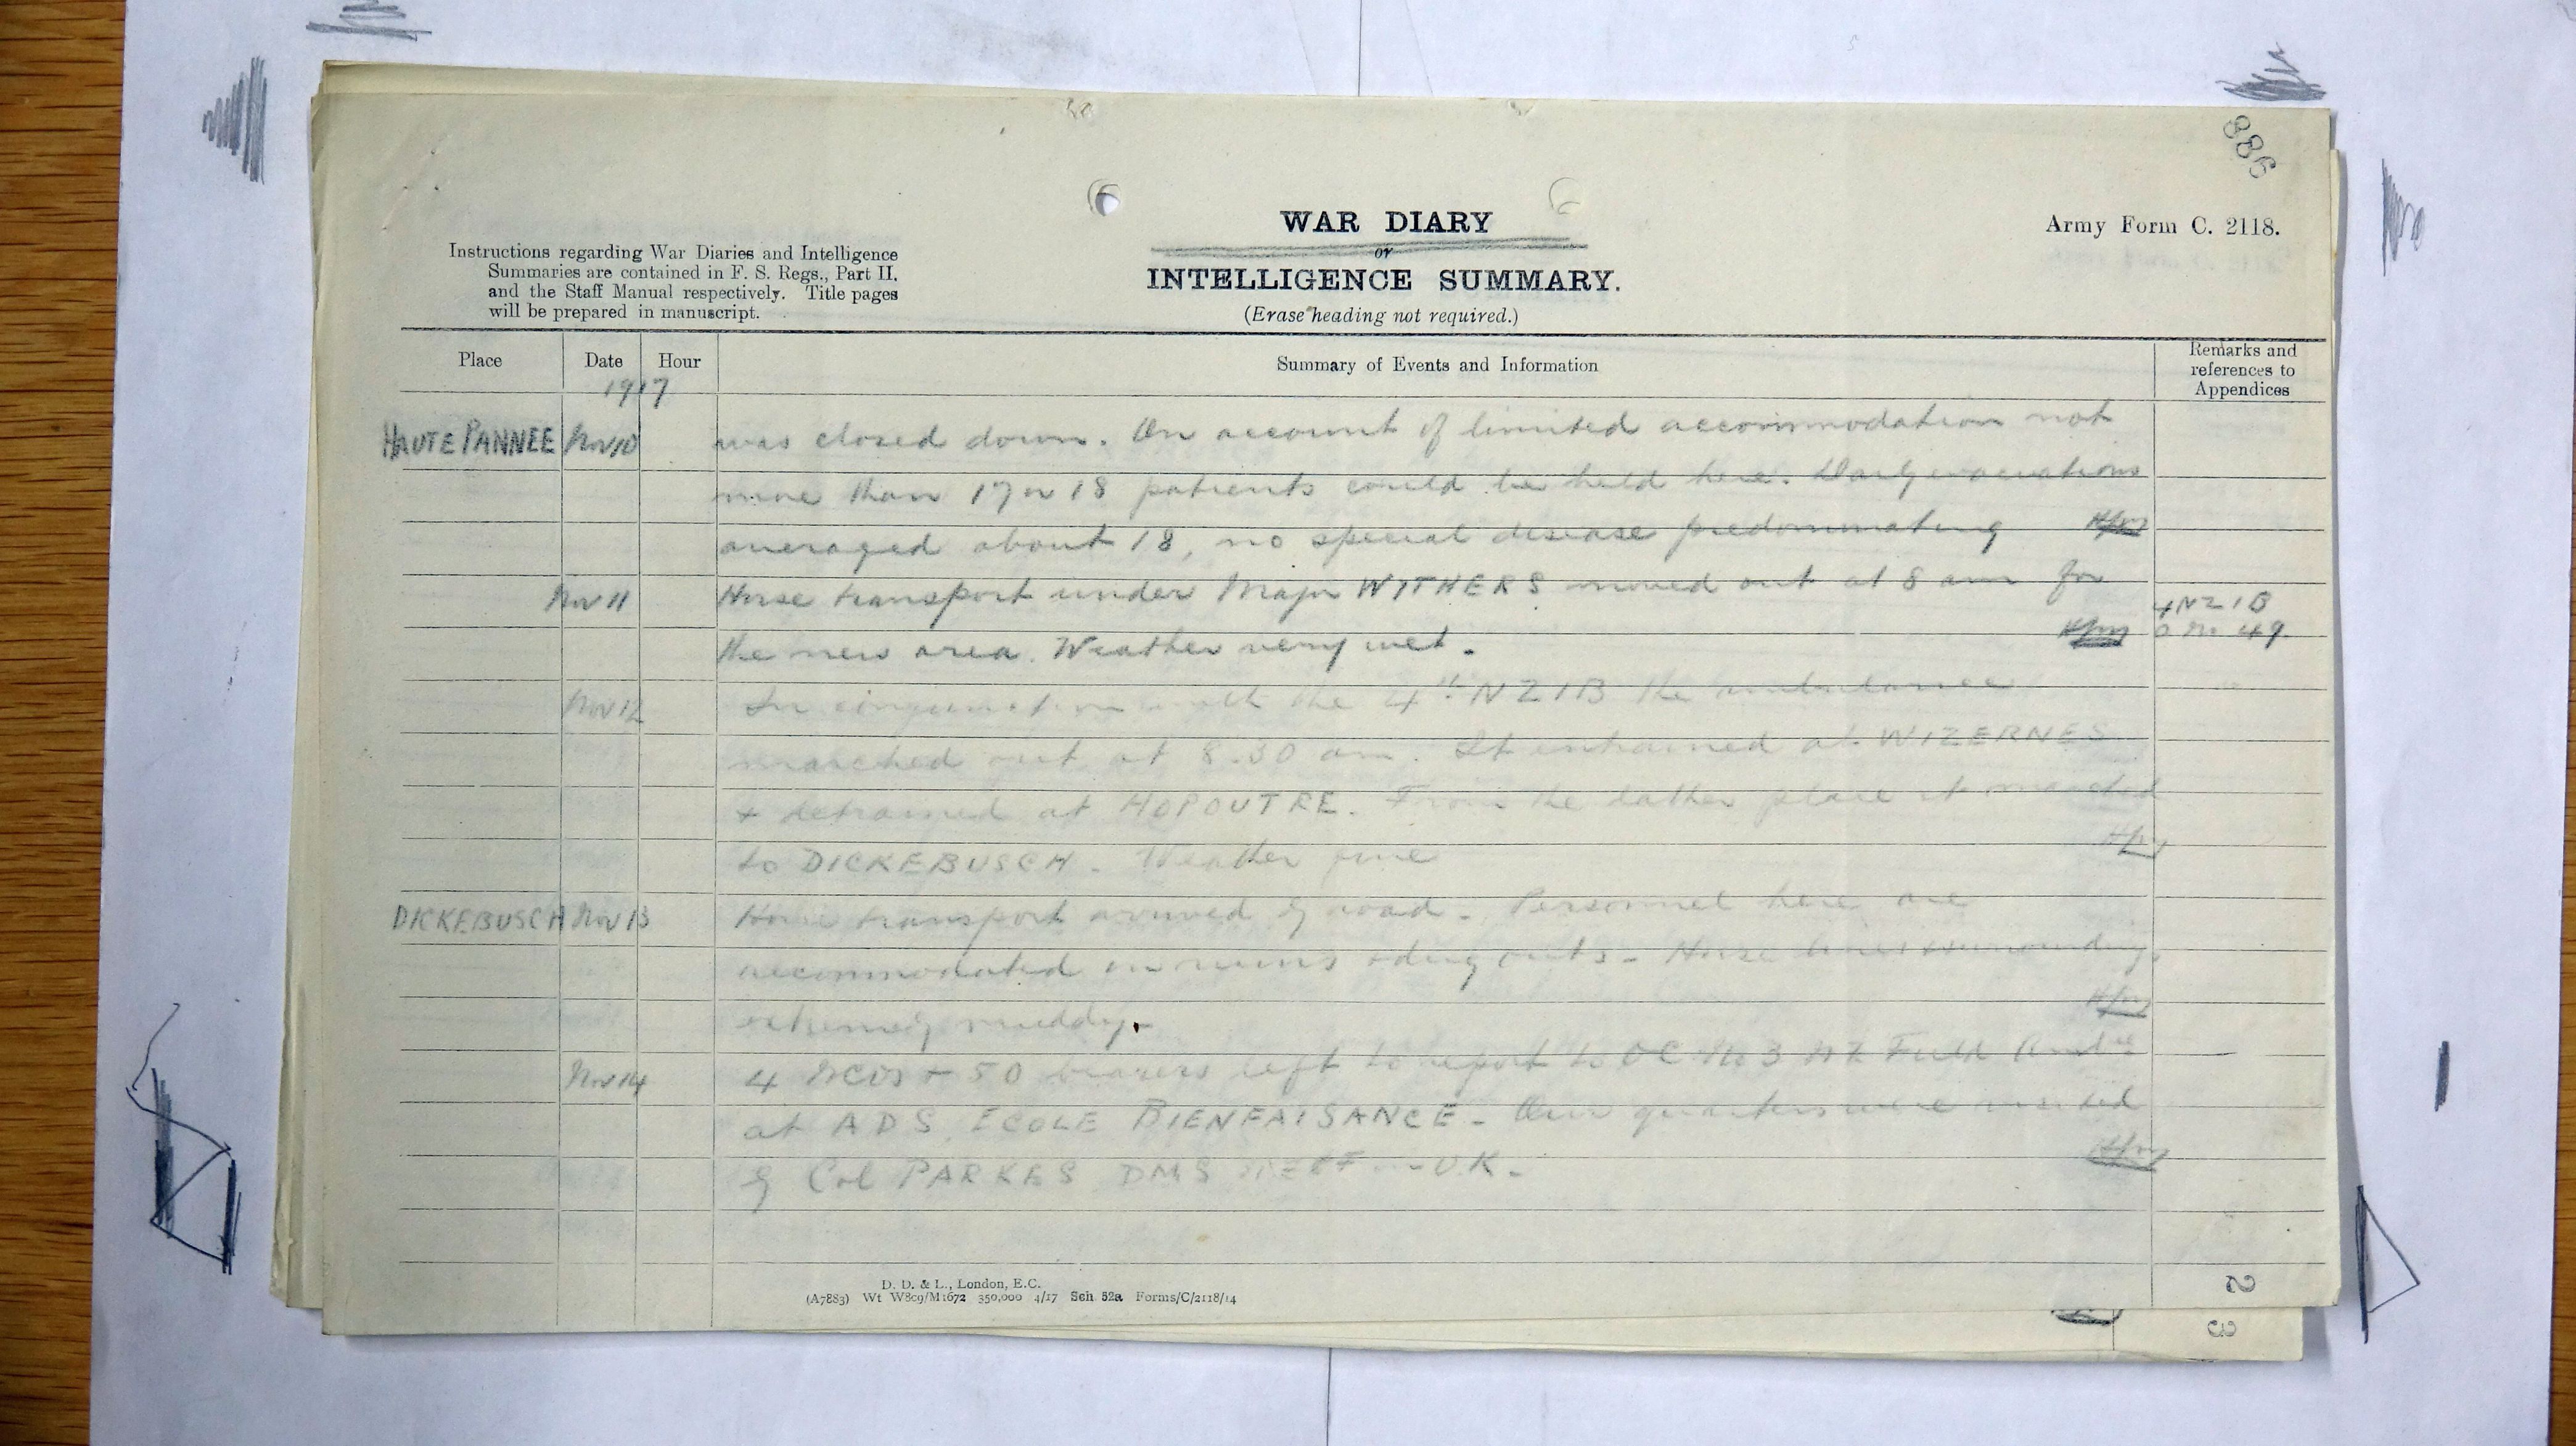 886
WAR DIARY
or
INTELLIGENCE SUMMARY.
(Erase heading not required.)
Army Form C. 2118.
Instructions regarding War Diaries and Intelligence
Summaries are contained in F. S. Regs., Part II.
and the Staff Manual respectively. Title pages
will be prepared in manuscript.
Place Date Hour Summary of Events and Information Remarks and
references to
Appendices
1917
HAUTE PANNEE Nov 10 was closed down. On account of limited accommodation not
more than 17 or 18 patients could be held here. Daily evacuations
averaged about 18, no special disease predominating
Nov 11 Horse transport under Major WITHERS moved out at 8 am for
the new area. Weather very wet.
4 NZ IB
O No 49.
Nov 12 In conjunction with the 4th NZIB the ambulance
marched out at 8.30 am. It entrained at WIZERNES
+ detrained at HOPOUTRE. From the latter place it marched
to DICKEBUSCH. Weather fine
DICKEBUSCH Nov 13 Horse transport arrived by road. Personnel here are
accommodated in ruins + dug outs. Horse lines + surroundings
extremely muddy.
Nov 14 4 NCOs + 50 bearers left to report to OC No 3 NZ Field Ambce
at ADS, ECOLE BIENFAISANCE. Our quarters were visited
by Col PARKES DMS NZEF U.K.
D. D. & L., London, E.C.
(A7883) Wt W8c9/M1672 350,000 4/17 Sch 52a Forms/C/2118/14
2
3